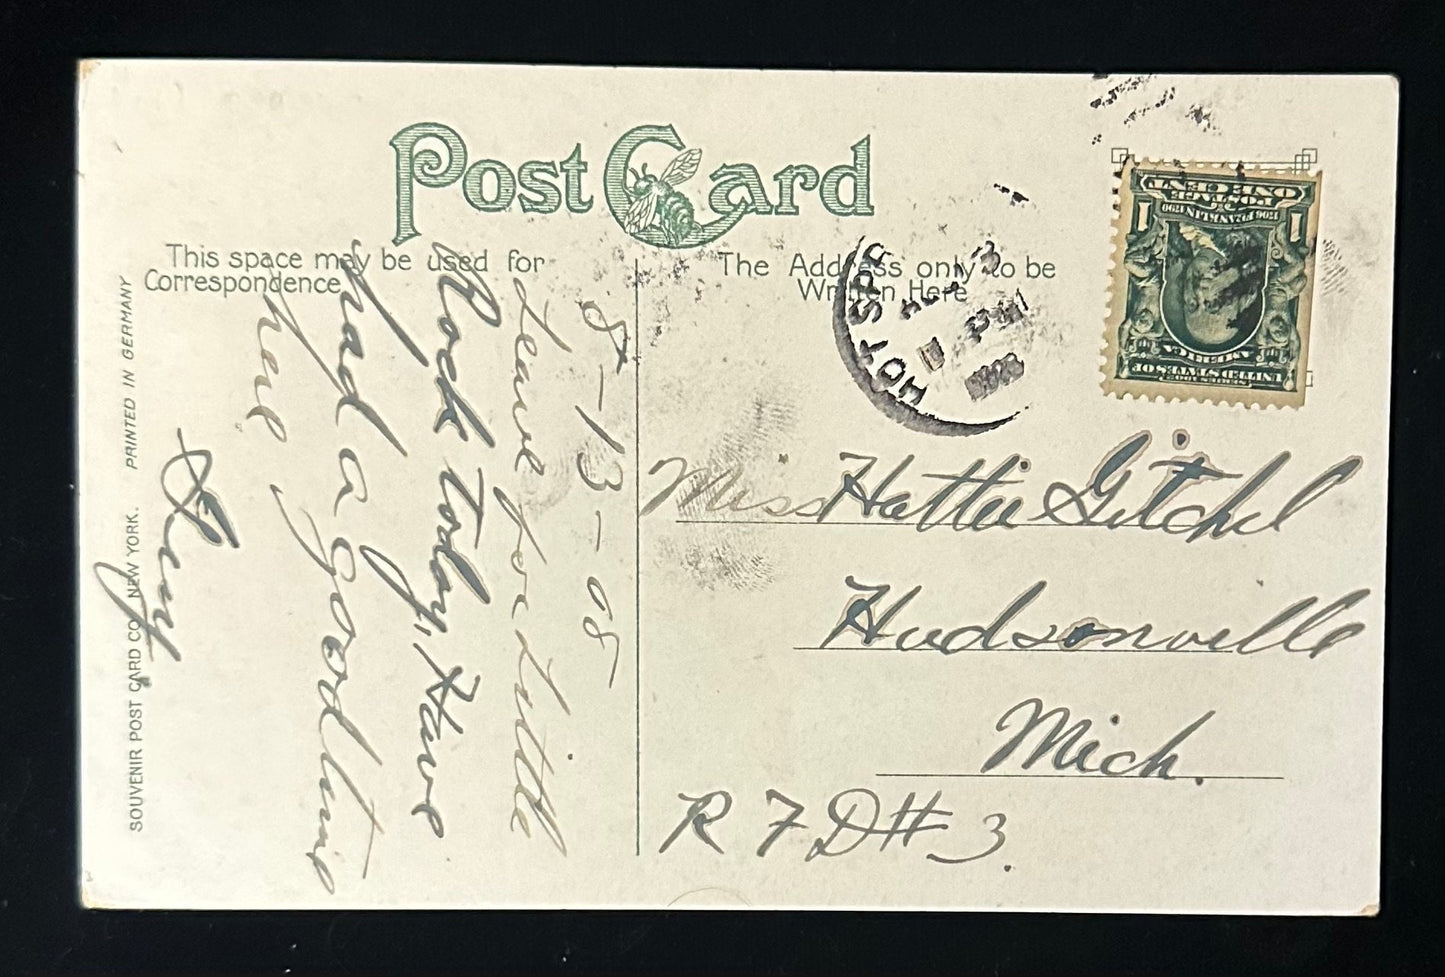 Post Card
This space may be used for
Correspondence
The Address only to be
Written Here
8-13-08
Leave for Little
Rock today, Have
had a good time
here
SOUVENIR POST CARD CO. NEW YORK. PRINTED IN GERMANY
HOT SPR
1908
SERIES 1902
UNITED STATES OF
AMERICA
1706 FRANKLIN 1790
POSTAGE
ONE CENT
1 1
Miss Hattie Gitchel
Hudsonville
Mich.
R F D # 3.